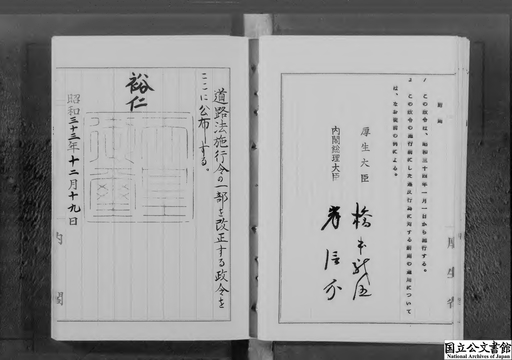 附則
1 この政令は、昭和三十四年一月一日から施行する。
2 この政令の施行前にした違反行為に対する罰則の適用について
は、なお従前の例による。
厚生大臣 橋本龍伍
内閣総理大臣 岸信介
厚生省
道路法施行令の一部を改正する政令を
ここに公布する。
裕仁
天皇御璽
昭和三十三年十二月十九日
内閣
国立公文書館
National Archives of Japan